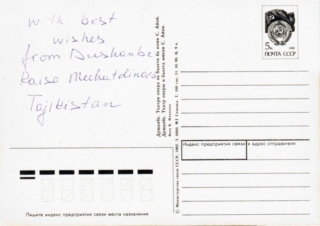 with best
wishes
from Dushanbe
Raisa Muchutdinova
Tajikistan
5к
ПОЧТА СССР
Душанбе. Театр оперы и балета имени С. Айни.
Индекс предприятия связи и адрес отправителя
Пишите индекс предприятия связи места назначения